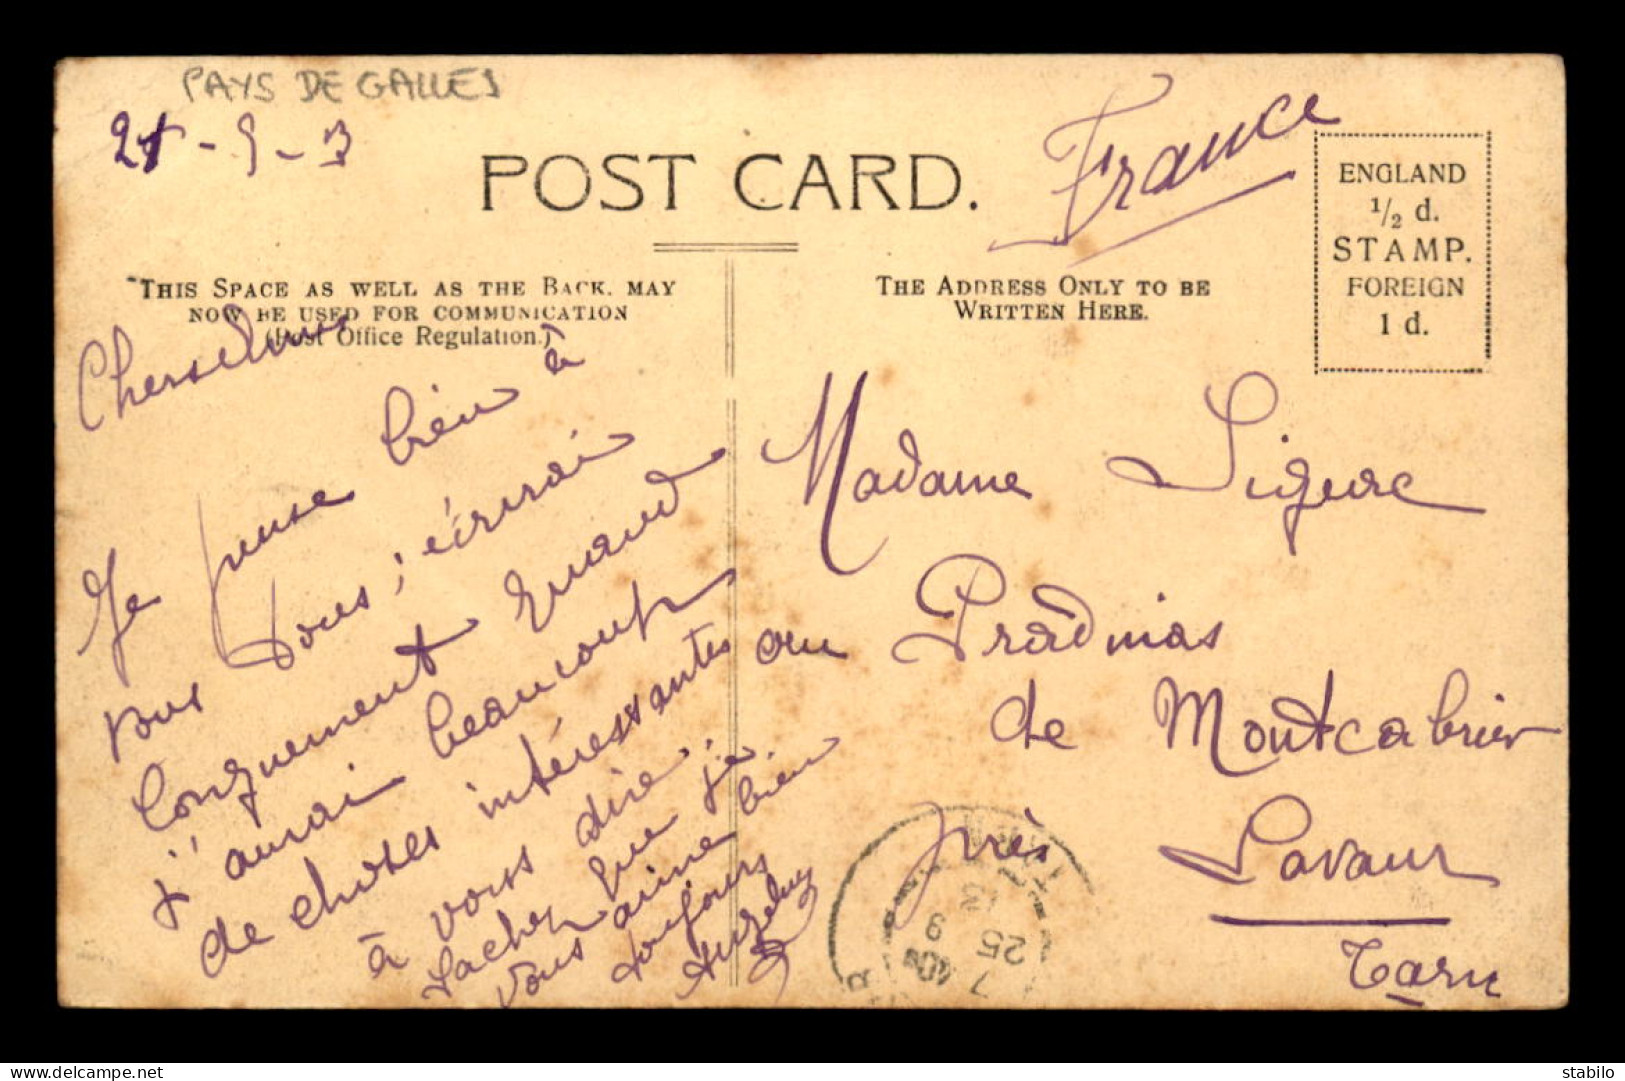 PAYS DE GALLES
- 9 - 3
France
POST CARD.
ENGLAND
1/2 d.
STAMP.
FOREIGN
1 d.
THIS SPACE AS WELL AS THE BACK, MAY
NOW BE USED FOR COMMUNICATION
(Post Office Regulation.)
THE ADDRESS ONLY TO BE
WRITTEN HERE.
Je pense bien à
vous; écrirai
vous
longuement quand
j'aurai beaucoup
de choses intéressantes
à vous dire;
sachez que je
vous aime bien
toujours
Madame Ligure
au Pradmias
de Montcabrier
près Lavaur
Tarn
25
9
delcampe.net
stabilo